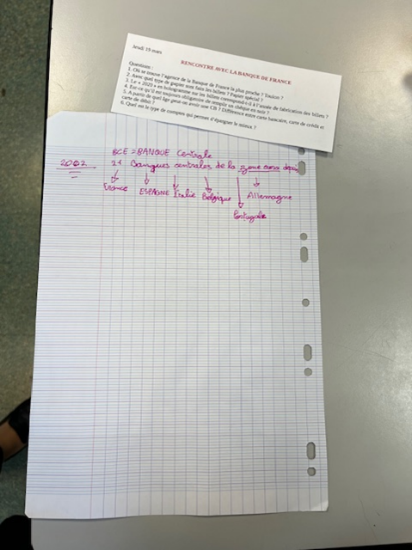 Jeudi 19 mars
RENCONTRE AVEC LA BANQUE DE FRANCE
Questions :
1. Où se trouve l'agence de la Banque de France la plus proche ? Toulon ?
2. Avec quel type de papier sont faits les billets ? Papier spécial ?
3. Le « 2021 » en hologramme sur les billets correspond-t-il à l'année de fabrication des billets ?
4. Est-ce qu'il est toujours obligatoire de remplir un chèque en noir ?
5. A partir de quel âge peut-on avoir une CB ? Différence entre carte bancaire, carte de crédit et
carte de débit ?
6. Quel est le type de comptes qui permet d'épargner le mieux ?
BCE = BANQUE Centrale
2002 21 Banques centrales de la zone euro
France ESPAGNE Italie Belgique Allemagne
Portugale